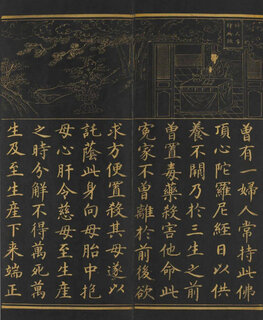 曾有一婦人常持此佛
頂心陀羅尼經日以供
養不闕乃於三生之前
曾置毒藥殺害他命此
寃家不曾離於前後欲
求方便置殺其母遂以
託蔭此身向母胎中抱
母心肝令慈母至生産
之時分解不得萬死萬
生及至生産下来端正